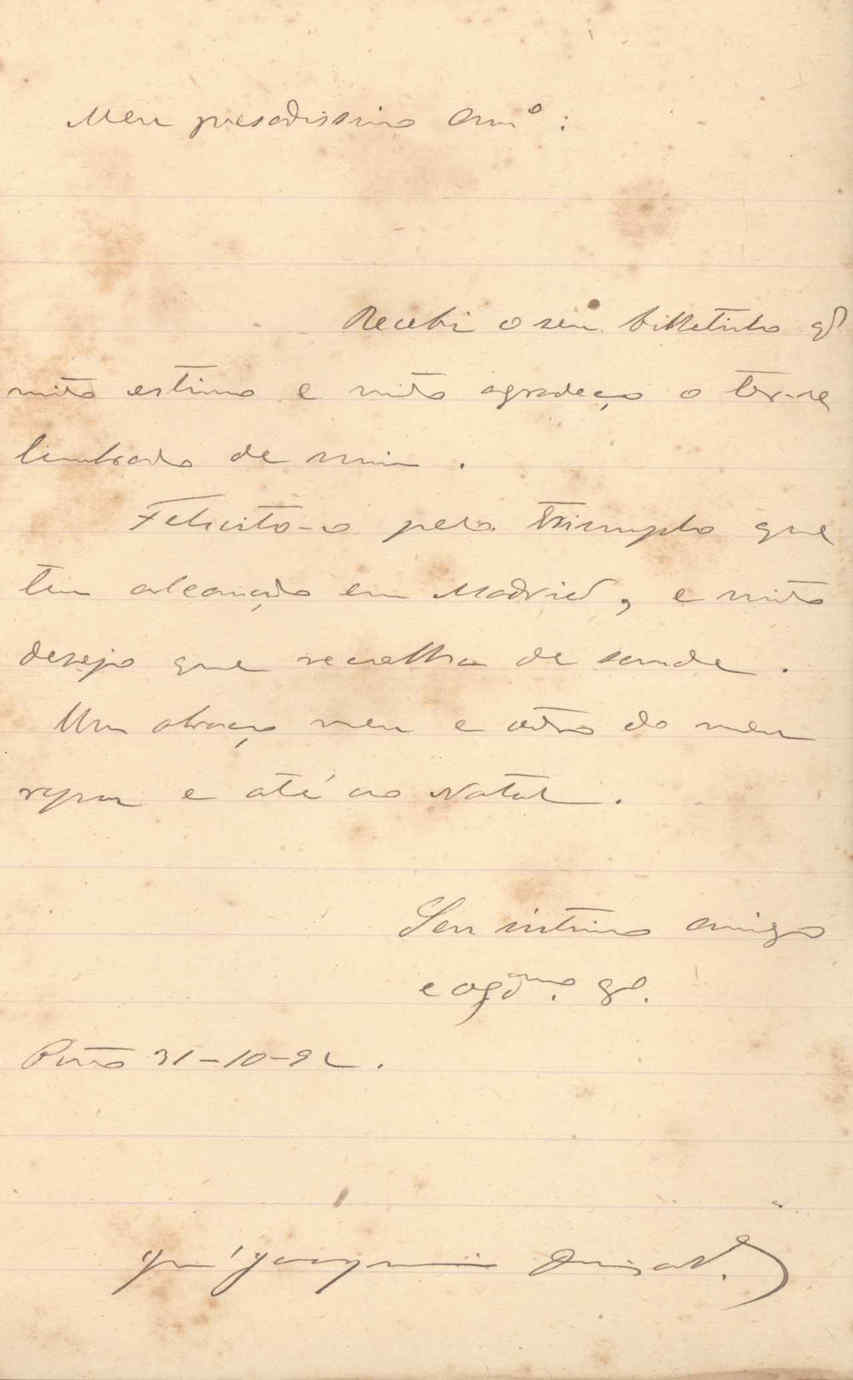 Meu presadissimo Amº:
Recebi o seu bilhetinho q
muito estimo e muito agradeço o ter-se
lembrado de mim.
Felicito-o pelo triumpho que
tem alcançado em Madrid, e muito
desejo que recolha de saude.
Um abraço meu e outro do meu
rapaz e até ao Natal.
Seu intimo amigo
e
Porto 31-10-92.
Joaquim